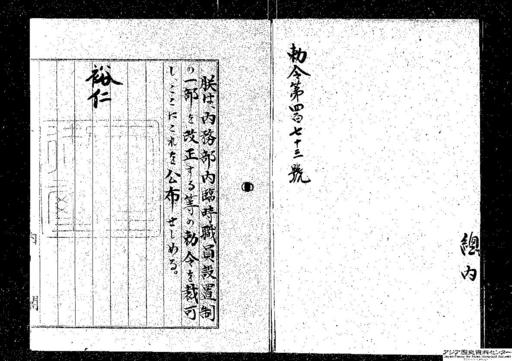 勅令第四百七十三號
總内
朕は、内務部内臨時職員設置制
の一部を改正する等の勅令を裁可
し、ここにこれを公布せしめる。
裕仁
アジア歴史資料センター